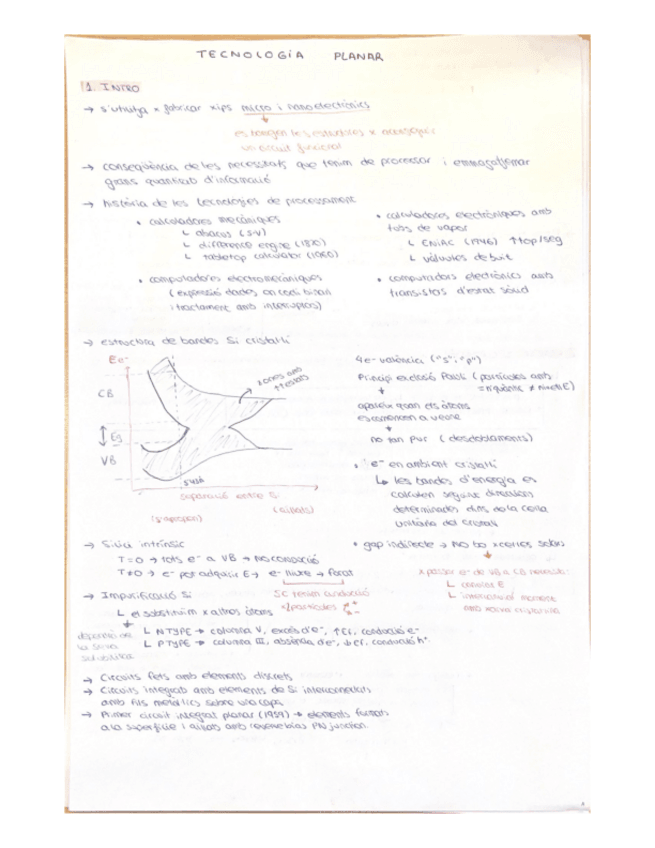 TECNOLOGÍA PLANAR
1. INTRO
→ s'utilitza x fabricar xips micro i nanoelectrònics
es barregen les estructures x aconseguir
un circuit funcional
→ conseqüència de les necessitats que tenim de processar i emmagatzemar
grans quantitats d'informació
→ història de les tecnologies de processament
• calculadores mecàniques
↳ abacus (s-V)
↳ difference engine
↳ tabletop calculator
• computadores electromecàniques
(expressió dades en codi binari
i tractament amb interruptors)
• calculadores electròniques amb
tubs de vapor
↳ ENIAC (1946) ↑↑op/seg
↳ vàlvules de buit
• computadors electrònics amb
transistors d'estat sòlid
→ estructura de bandes Si cristal·lí
E e⁻
CB
Eg
VB
zones amb
↑↑estats
separació entre Si
(aïllats)
4e⁻ valència ("s", "p")
Principi exclusió Pauli (partícules amb
apareix quan els àtoms
comencen a veure
no tan pur (desdoblaments)
• e⁻ en ambient cristal·lí
↳ les bandes d'energia es
calculen seguint direccions
determinades dins de la cel·la
unitària del cristall
→ Silici intrínsic
T=0 → tots e⁻ a VB → NO CONDUCCIÓ
T≠0 → e⁻ pot adquirir E → e⁻ lliure → forat
2 partícules
• gap indirecte → NO bo x cel·les solars
x passar e⁻ de VB a CB necessito:
↳ canvi E
↳ intercanvi moment
amb xarxa cristal·lina
→ Impurificació Si
↳ el substituïm x altres àtoms
↳ N TYPE → columna V, excés d'e⁻, ↑Ef, conducció e⁻
↳ P TYPE → columna III, absència d'e⁻, ↓Ef, conducció h⁺
depenció de
la seva
solubilitat
→ Circuits fets amb elements discrets
→ Circuits integrats amb elements de Si interconnectats
amb fils metàl·lics sobre una capa
→ Primer circuit integrat planar (1959) → elements formats
a la superfície i aïllats amb PN junction.